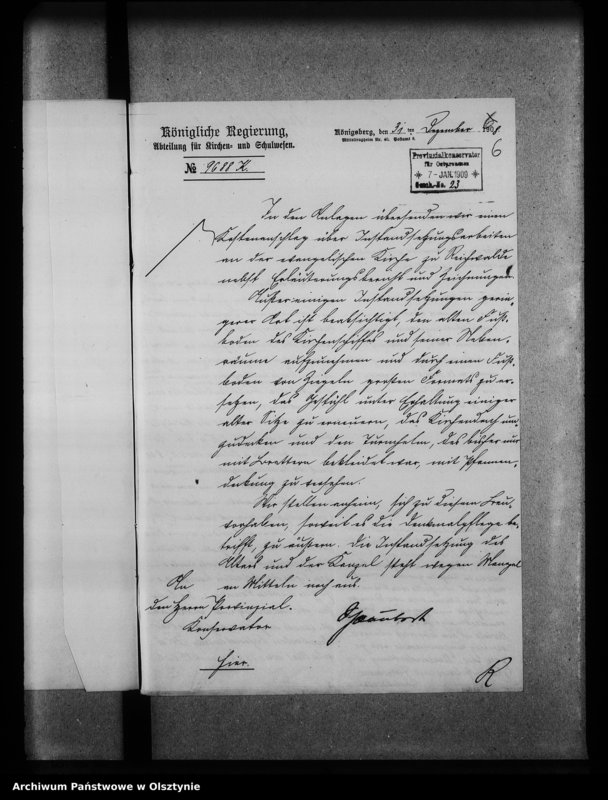 Königliche Regierung,
Abteilung für Kirchen- und Schulwesen.
№ 9688 K.
Königsberg, den 31 ten Dezember 1908
Mitteltragheim Nr. 40. Postamt 5.
6
Provinzialkonservator
für Ostpreussen
7 - JAN. 1909
Gesch.-No. 23
In den Anlagen übersenden wir einen
Kostenanschlag über Instandsetzungsarbeiten
an der evangelischen Kirche zu Reichwalde
nebst Erläuterungsbericht und Zeichnungen.
Außer einigen Instandsetzungen gerin-
gerer Art ist beabsichtigt, den alten Fuß-
boden des Kirchenschiffes und seiner Neben-
räume aufzunehmen und durch einen Fuß-
boden von Ziegeln großen Formats zu er-
setzen, das Gestühl unter Erhaltung einiger
alter Sitze zu erneuern, das Kirchendach um-
zudecken und den Turmhelm, der bisher nur
mit Brettern bekleidet war, mit Pfannen-
deckung zu versehen.
Wir stellen anheim, sich zu diesem Bau-
vorhaben, soweit es die Denkmalpflege be-
trifft, zu äußern. Die Instandsetzung des
Altars und der Kanzel steht wegen Mangel
an Mitteln noch aus.
An
den Herrn Provinzial-
Konservator
hier.
R
Archiwum Państwowe w Olsztynie